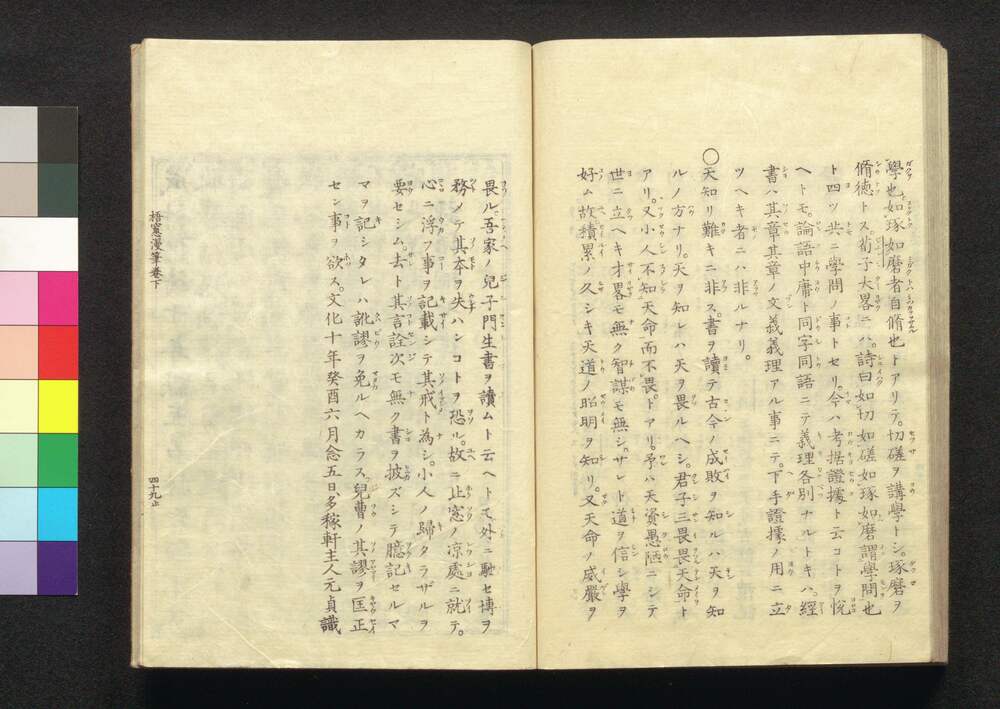 學也如琢如磨者自脩也トアリテ。切磋ヲ講學トシ。琢磨ヲ
脩徳トス。荀子大畧ニハ。詩曰如切如磋如琢如磨謂學問也
ト四ツ共ニ學問ノ事トセリ。今ハ考据證據ト云コトヲ悅
ヘトモ。論語中庸ト同字同語ニテ義理各別ナルトキハ。經
書ハ其章其章ノ文義義理アル事ニテ。下手證據ノ用ニ立
ツヘキ者ニハ非ルナリ。
〇天知リ難キニ非ス。書ヲ讀テ古今ノ成敗ヲ知ルハ天ヲ知
ルノ方ナリ。天ヲ知レハ天ヲ畏ルヘシ。君子三畏畏天命ト
アリ。又小人不知天命而不畏。トアリ。予ハ天資愚陋ニシテ
世ニ立ヘキ才畧モ無ク智謀モ無シ。サレト道ヲ信シ學ヲ
好ム故積累ノ久シキ天道ノ昭明ヲ知リ。又天命ノ威嚴ヲ
畏ル。吾家ノ兒子門生書ヲ讀ムト云ヘトモ外ニ馳セ博ヲ
務メテ其本ヲ失ハンコトヲ恐ル。故ニ止窓ノ凉處ニ就テ。
心ニ浮フ事ヲ記載シテ其戒ト為シ。小人ノ歸タラザルヲ
要セシム。去ト其言詮次モ無ク書ヲ披ズシテ臆記セルマ
マヲ記シタレハ訛謬ヲ免ルヘカラス。兒曹ノ其謬ヲ匡正
セン事ヲ欲ス。文化十年癸酉六月念五日。多稼軒主人元貞識
梧窻漫筆巻下
四十九止